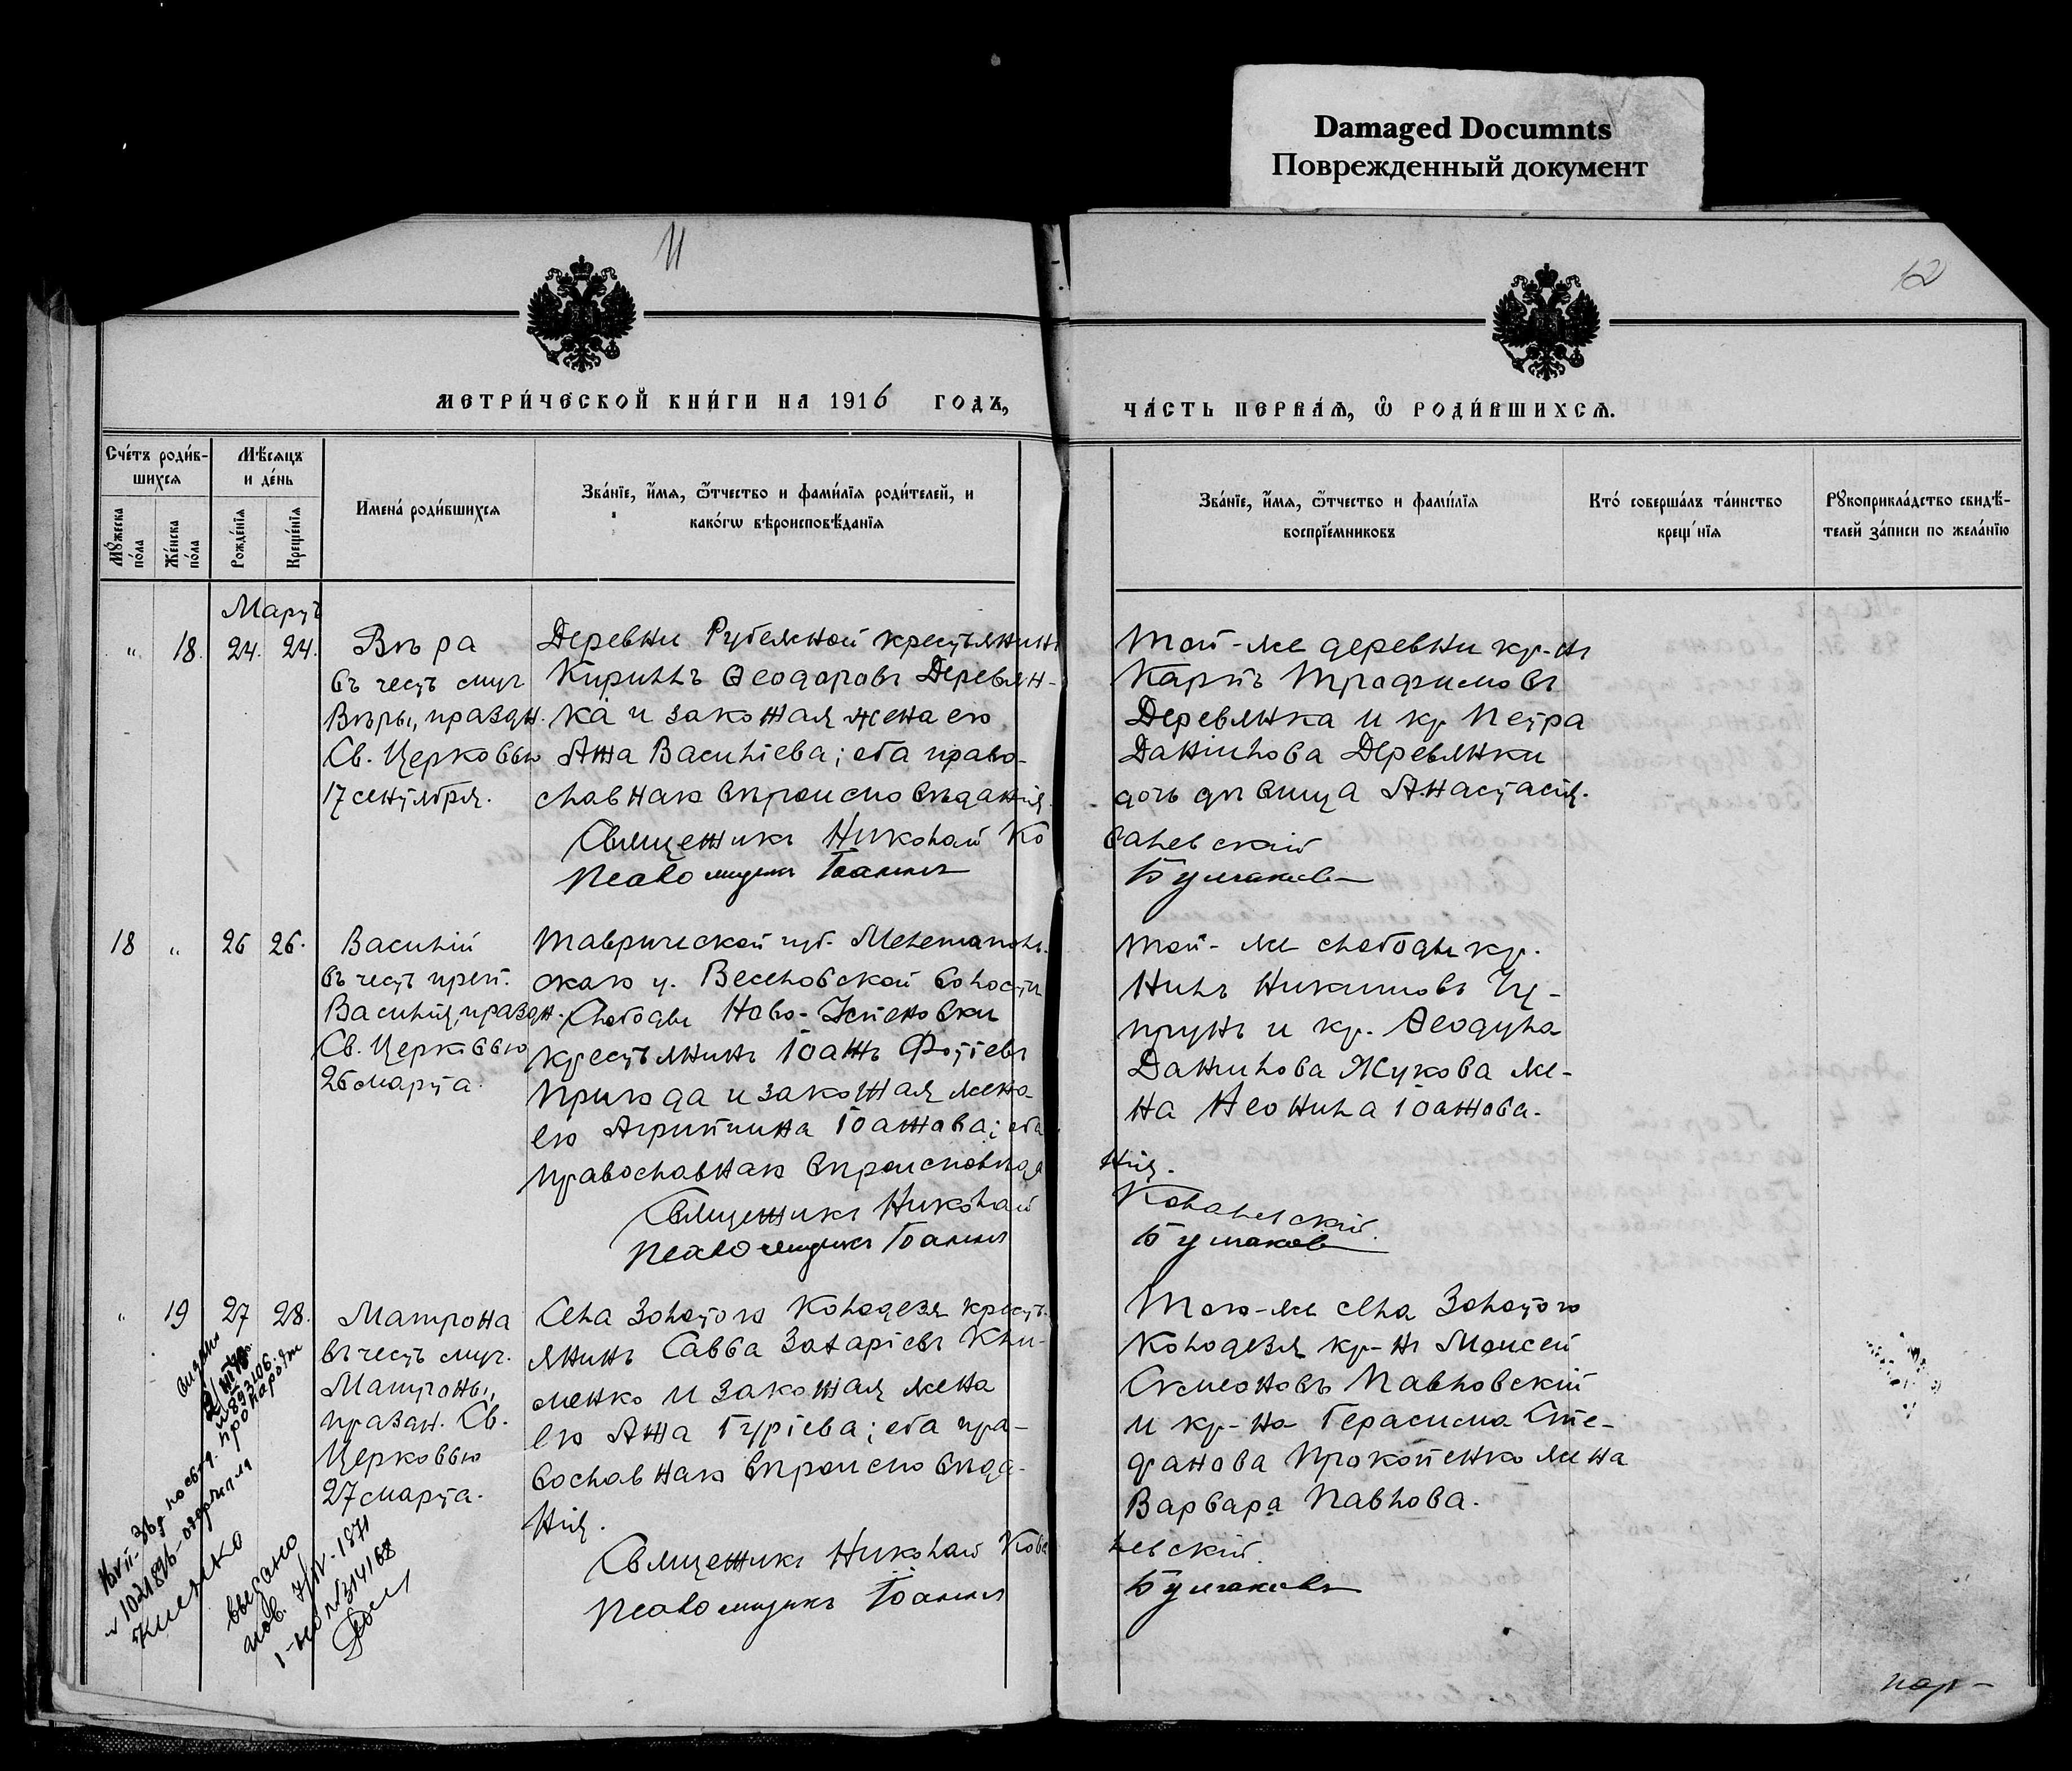 Damaged Documnts
Поврежденный документ
11
12
МЕТРИ́ЧЕСКОЙ КНИ́ГИ НА 1916 ГОДЪ,
ЧА́СТЬ ПЕРВАЯ, Ѿ РОДИ́ВШИХСЯ.
Сче́тъ роди́в-
шихся
Мѣсяцъ
и де́нь
Мꙋ́жеска
по́ла
Же́нска
по́ла
Рожде́нїя
Креще́нїя
Имена́ роди́вшихся
Зва́нїе, и҆́мя, ѻ҆́тчество и фами́лїя роди́телей, и
како́гѡ вѣроисповѣ́данїя
Зва́нїе, и҆́мя, ѻ҆́тчество и фами́лїя
воспрїе́мниковъ
Кто́ соверша́лъ та́инство
креще́нїя
Рꙋкоприкла́дство свидѣ́-
телей за́писи по жела́нїю
Мартъ
" 18. 24. 24.
Вѣра
въ честь муч.
Вѣры, праздн.
Св. Церковью
17 сентября.
Деревни Рубежной крестьянинъ
Кириллъ Ѳеодоровъ Деревян-
ка и законная жена его
Анна Васильева; оба право-
славнаго вѣроисповѣданія.
Священникъ Николай Ко
Псаломщикъ Іоаннъ
Той-же деревни кр-нъ
Карпъ Трофимовъ
Деревянка и кр. Петра
Даніилова Деревянки
дочь дѣвица Анастасія.
валевскій
Булгаковъ
18 " 26 26.
Василій
въ честь преп.
Василія, праздн.
Св. Церковью
26 марта.
Таврической губ. Мелитополь-
скаго у. Веселовской волости
Слободы Ново-Успеновки
крестьянинъ Іоаннъ Фотіевъ
Приходa и законная жена
его Агриппина Іоаннова; оба
православнаго вѣроисповѣда
Священникъ Николай
Псаломщикъ Іоаннъ
Той-же слободы кр.
Нилъ Никитовъ
и кр. Ѳеодула
Даниилова Жукова же-
на Леонилла Іоаннова.
нія.
Ковалевскій.
Булгаковъ
" 19 27 28.
Матрона
въ честь муч.
Матроны,
праздн. Св.
Церковью
27 марта.
Села Золотого Колодезя кресть-
янинъ Савва Захаріевъ Кли-
менко и законная жена
его Анна Гуріева; оба пра-
вославнаго вѣроисповѣда-
нія.
Священникъ Николай Кова
Псаломщикъ Іоаннъ
Того-же села Золотого
Колодезя кр-нъ Моисей
Симеоновъ Павловскій
и кр-на Герасима Сте-
фанова Прокопенко жена
Варвара Павлова.
левскій.
Булгаковъ
пар-